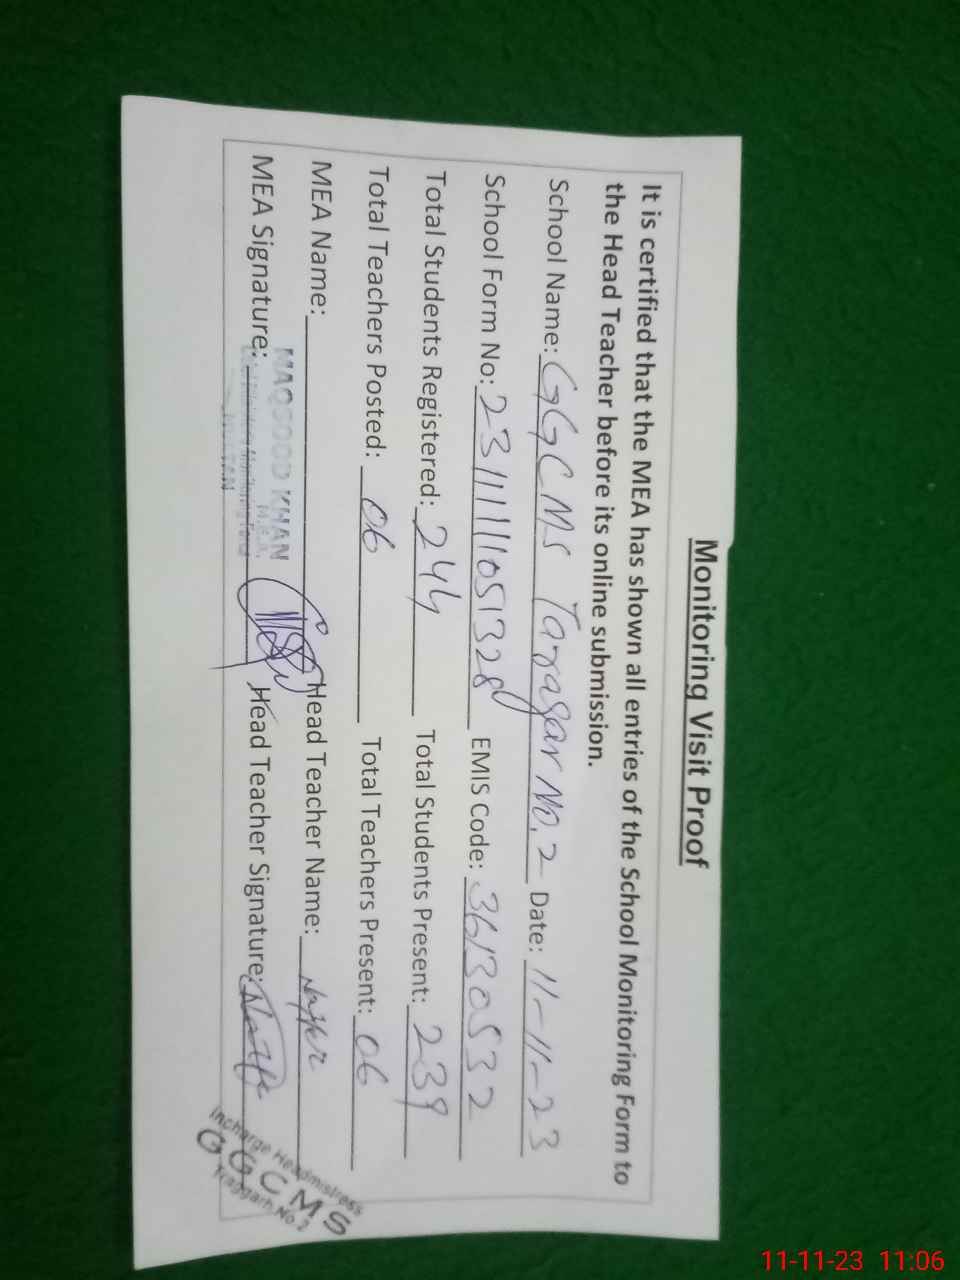 Monitoring Visit Proof
It is certified that the MEA has shown all entries of the School Monitoring Form to
the Head Teacher before its online submission.
School Name: GGCMS Taragar No. 2 Date: 11-11-23
School Form No: EMIS Code: 36130532
Total Students Registered: 244 Total Students Present: 239
Total Teachers Posted: 06 Total Teachers Present: 06
MEA Name: Head Teacher Name:
MEA Signature: Head Teacher Signature:
MAQSOOD KHAN
M.E.A.
MULTAN
Incharge Headmistress
GGCMS
Traggarh No.2
11-11-23 11:06